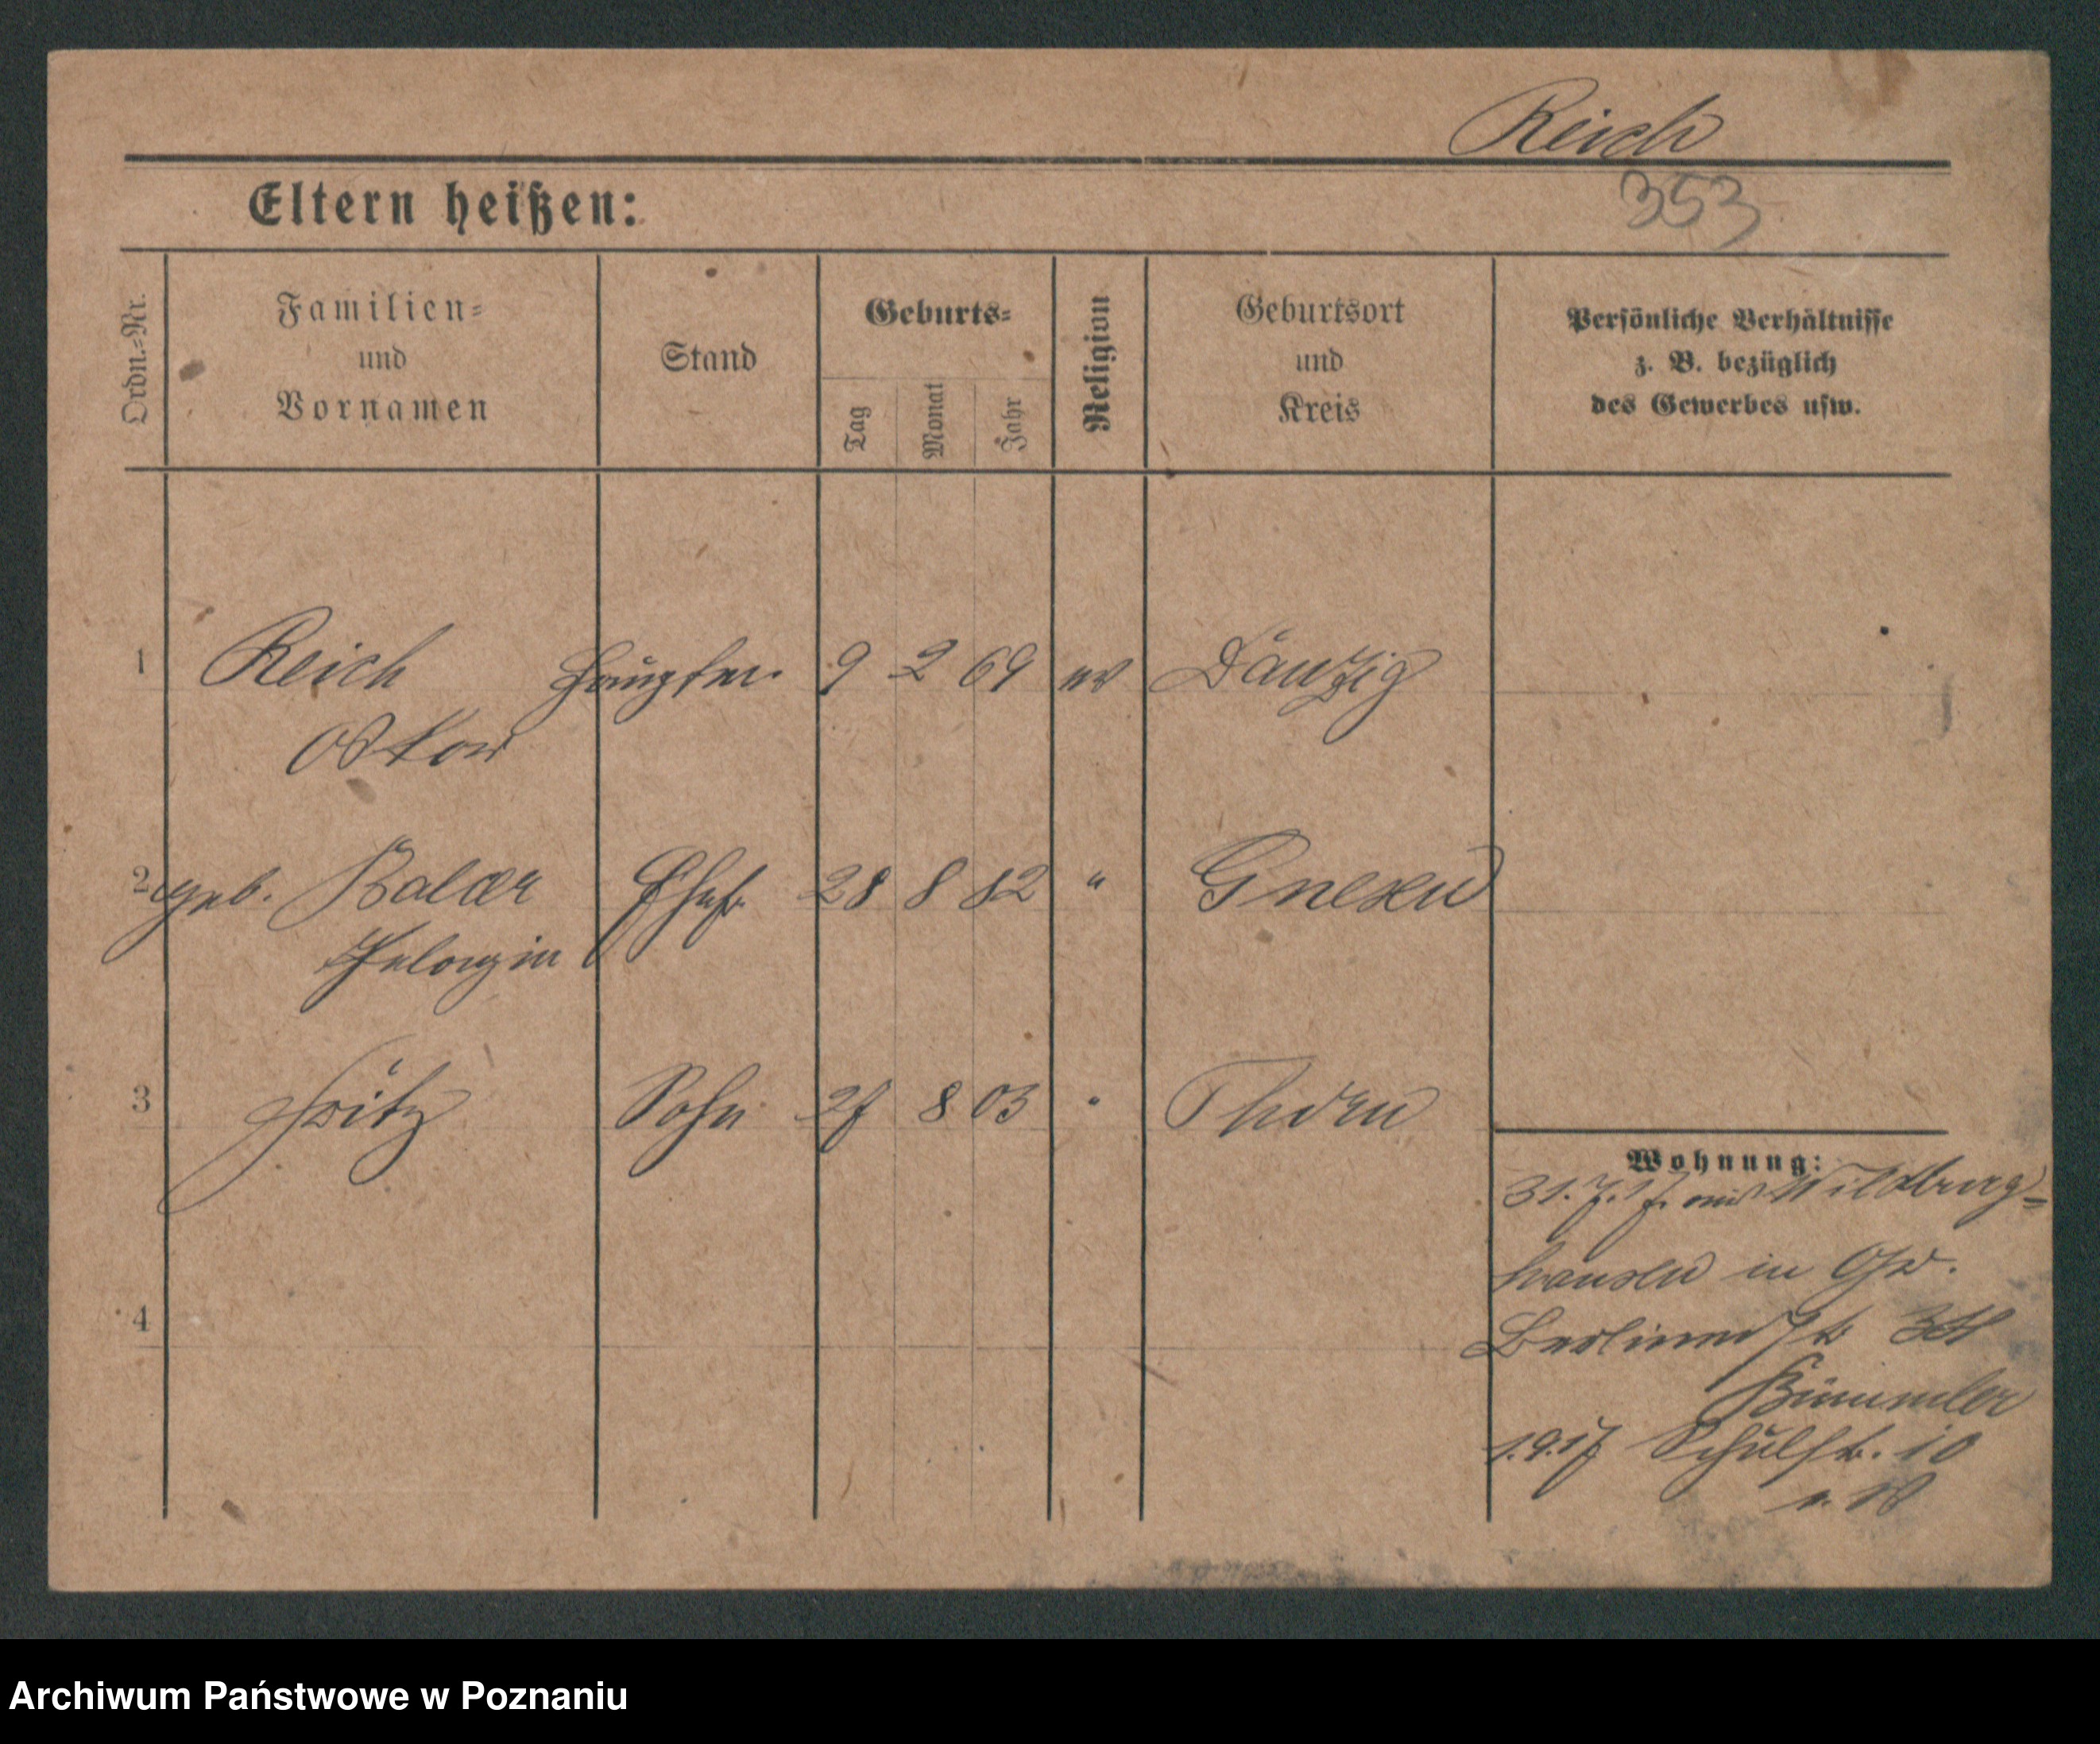 Reich
353
Eltern heißen:
Ordn.-Nr.
Familien-
und
Vornamen
Stand
Geburts-
Tag
Monat
Jahr
Religion
Geburtsort
und
Kreis
Persönliche Verhältnisse
z. B. bezüglich
des Gewerbes usw.
1 Reich Hauptm. 9 2 69 ev Danzig
Oskar
2 geb. Balcer Ehefr. 28 8 82 " Gnesen
Pelagia
3 Fritz Sohn 27 8 03 " Thorn
4
Wohnung:
31. 7. 17. aus Wildberg-
hausen in
Berliner Str
Bümmler
1.9.17 Schulstr. 10
Archiwum Państwowe w Poznaniu